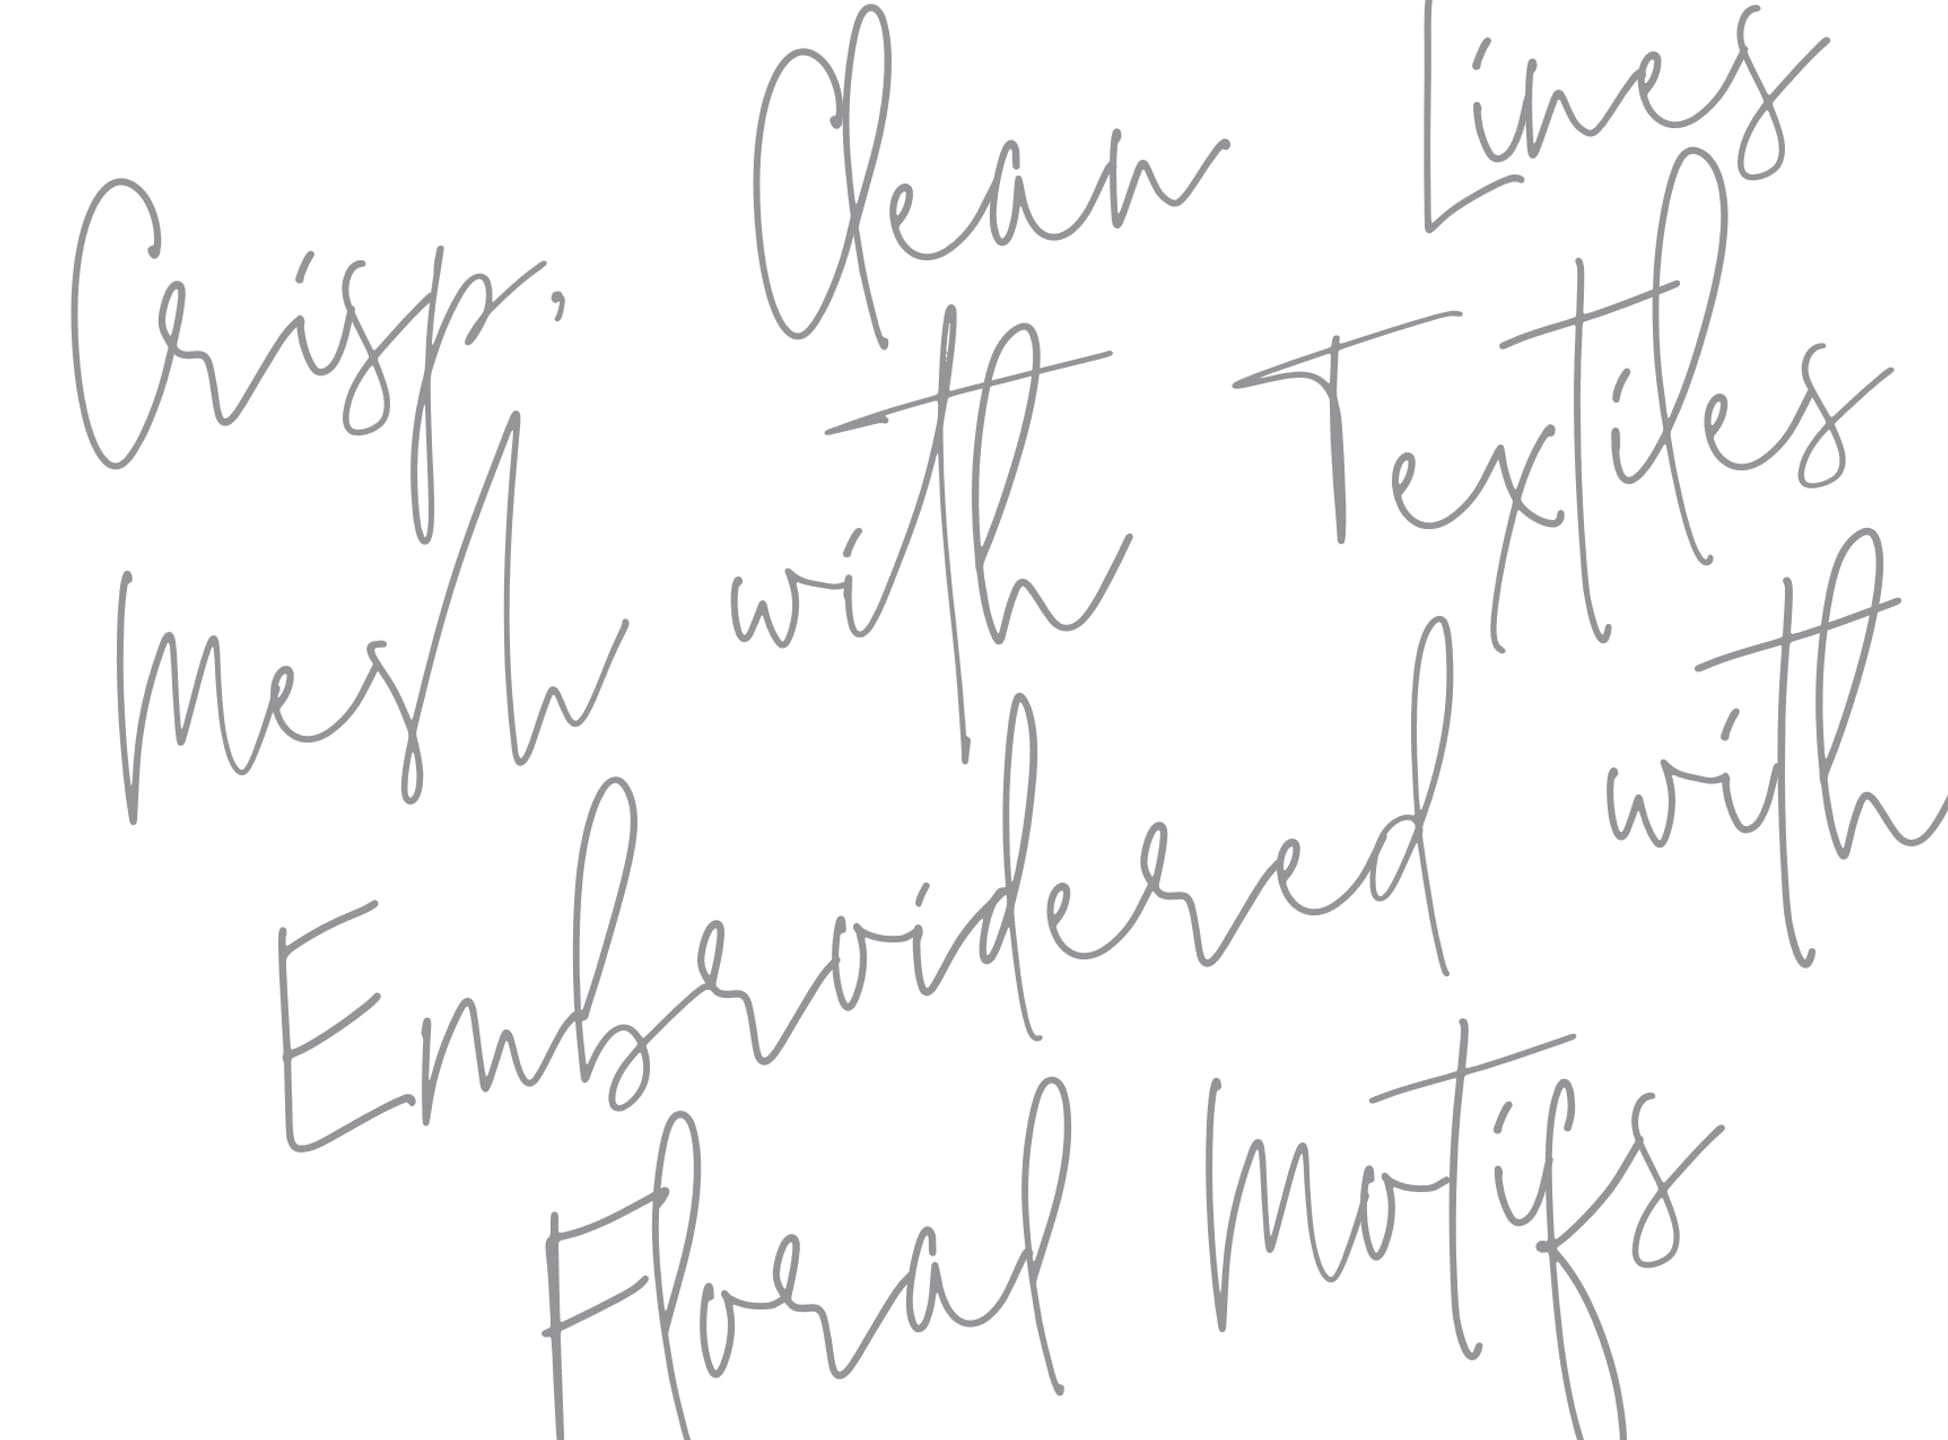 Crisp, Clean Lines
Mesh with Textiles
Embroidered with
Floral Motifs